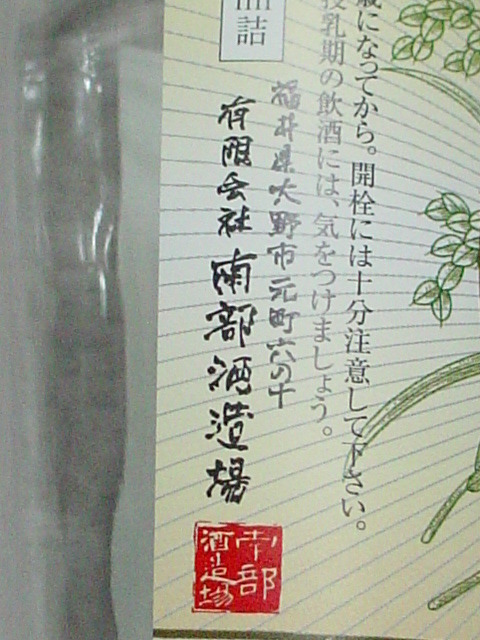 歳になってから。開栓には十分注意して下さい。
授乳期の飲酒には、気をつけましょう。
福井県大野市元町六の十
詰
有限会社南部酒造場
南部
酒造場